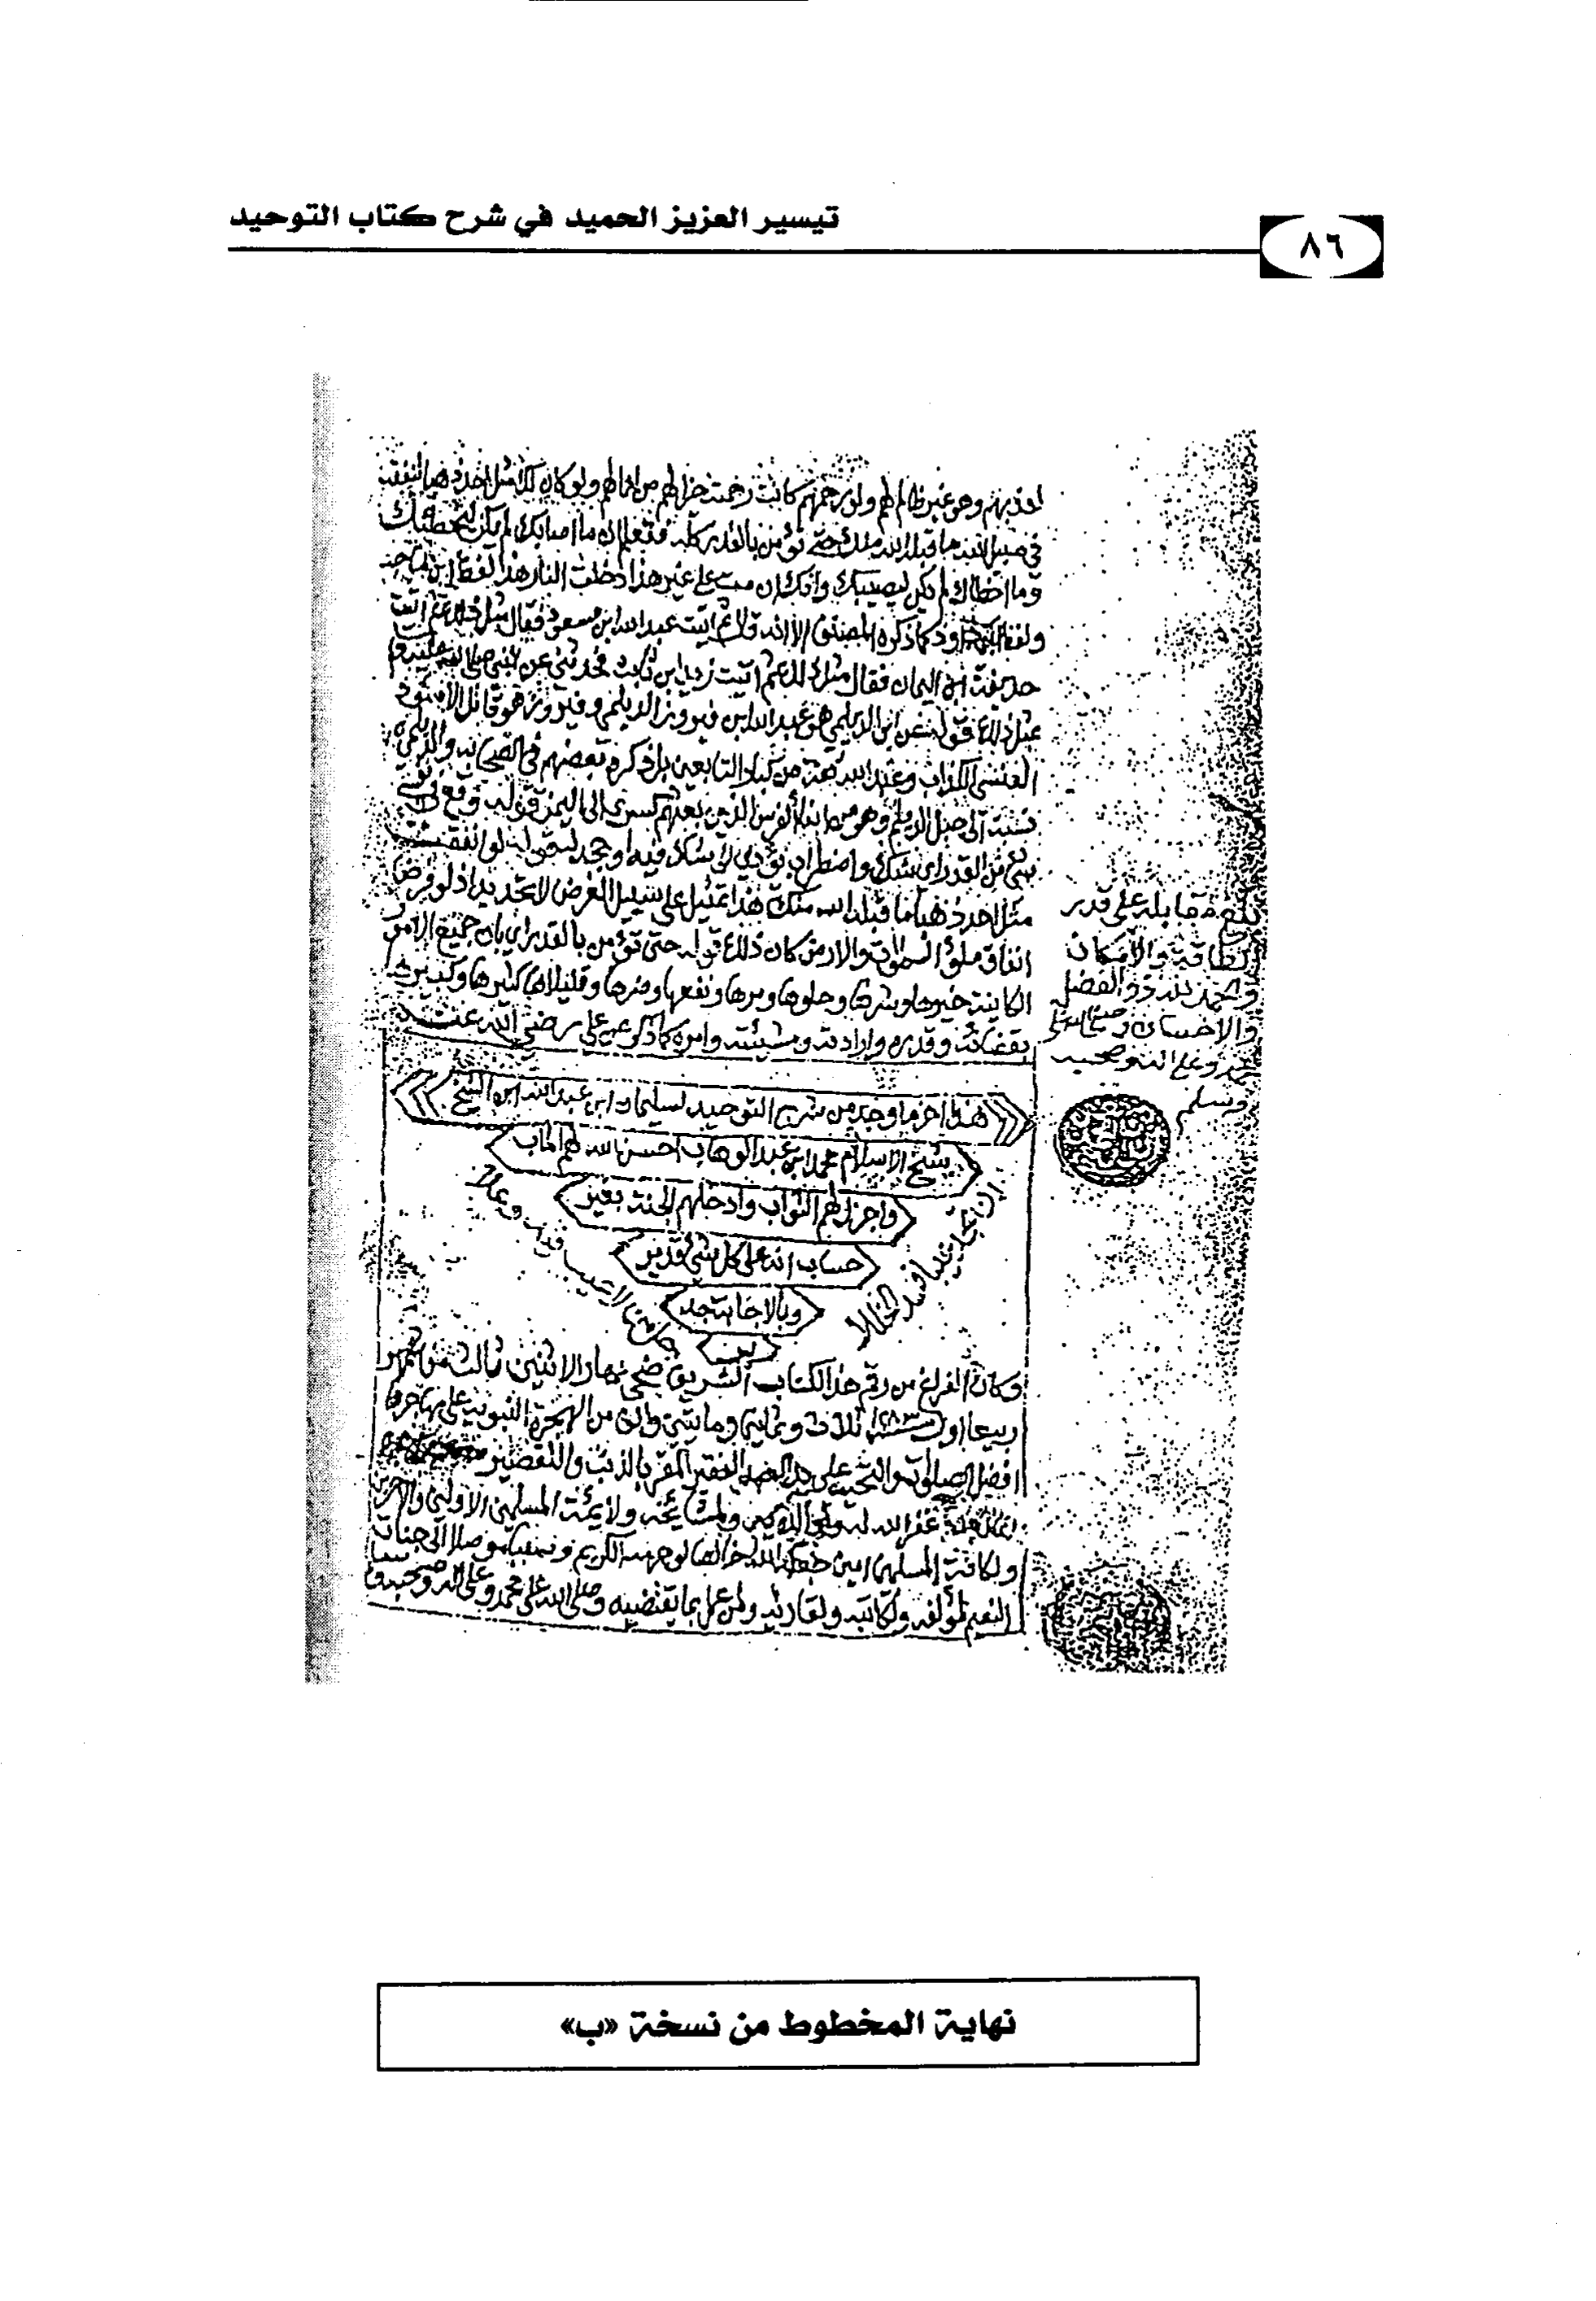 تيسير العزيز الحميد في شرح كتاب التوحيد
٨٦
لعذبهم وهو غير ظالم لهم ولو رحمهم كانت رحمته خيرا لهم من اعمالهم ولو كان لك مثل احد ذهبا انفقته
في سبيل الله ما قبله الله منك حتى تؤمن بالقدر كله فتعلم ان ما اصابك لم يكن ليخطئك
وما اخطاك لم يكن ليصيبك وانك ان مت على غير هذا دخلت النار هذا لفظ ابن ماجه
ولفظ ابي داود كما ذكره المصنف الا انه قال ثم اتيت عبد الله ابن مسعود فقال مثل ذلك ثم اتيت
حذيفة ابن اليمان فقال مثل ذلك ثم اتيت زيد ابن ثابت فحدثني عن النبي صلى الله عليه و
مثل ذلك قوله عن ابن الديلمي هو عبد الله ابن فيروز الديلمي وفيروز هو قاتل الاسود
العنسي الكذاب وعبد الله ثقة من كبار التابعين بل ذكره بعضهم في الصحابه والديلمي
نسبة الى جبل الديلم وهو من ابناء الفرس الذين بعثهم كسرى الى اليمن قوله وقع في نفسي
شيء من القدر اي شك واضطراب يؤدي الى شك فيه او جحد له قوله لو انفقت
مثل احد ذهبا ما قبله الله منك هذا تمثيل على سبيل الفرض لا تحديد اذ لو فرض
انفاق ملؤ السموات والارض كان ذلك قوله حتى تؤمن بالقدر اي بان جميع الامور
الكاينة خيرها وشرها وحلوها ومرها ونفعها وضرها وقليلها وكثيرها وكبيرها
بقضائه وقدره وارادته ومشيئته وامره كما ذكر عن علي رضي الله عنه
بلغ مقابلة على قدر
الطاقة والامكان
والحمد لله ذو الفضل
والاحسان وصلى الله على
محمد وعلى اله وصحبه
وسلم
هذا اخر ما وجد من شرح التوحيد لسليمان ابن عبد الله ابن الشيخ
شيخ الاسلام محمد ابن عبد الوهاب احسن الله لهم المآب
واجزل لهم الثواب وادخلهم الجنة بغير
حساب انه على كل شيء قدير
وبالاجابة جد
ير
ان تجد عيبا فسد الخللا
لا عيب فيه وعلا
وكان الفراغ من رقم هذا الكتاب الشريف ضحى نهار الاثنين ثالث من شهر
ربيعا اول سنة ١٢٨٣ ثلاث وثمانين ومايتين والف من الهجرة النبويه على مهاجرها
افضل الصلوات والتحيه على يد العبد الفقير المقر بالذنب والتقصير
غفر الله له ولوالديه ولمشايخه ولائمة المسلمين الاولين والاخرين
ولكافة المسلمين امين جعله الله خالصا لوجهه الكريم وسببا موصلا الى جنات
النعيم لمؤلفه ولكاتبه ولقارئه ولمن عمل بما يقتضيه وصلى الله على محمد وعلى اله وصحبه و
نهاية المخطوط من نسخة «ب»